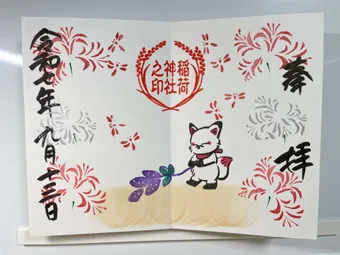 奉拝
稲荷
神社
之印
令和七年九月十三日